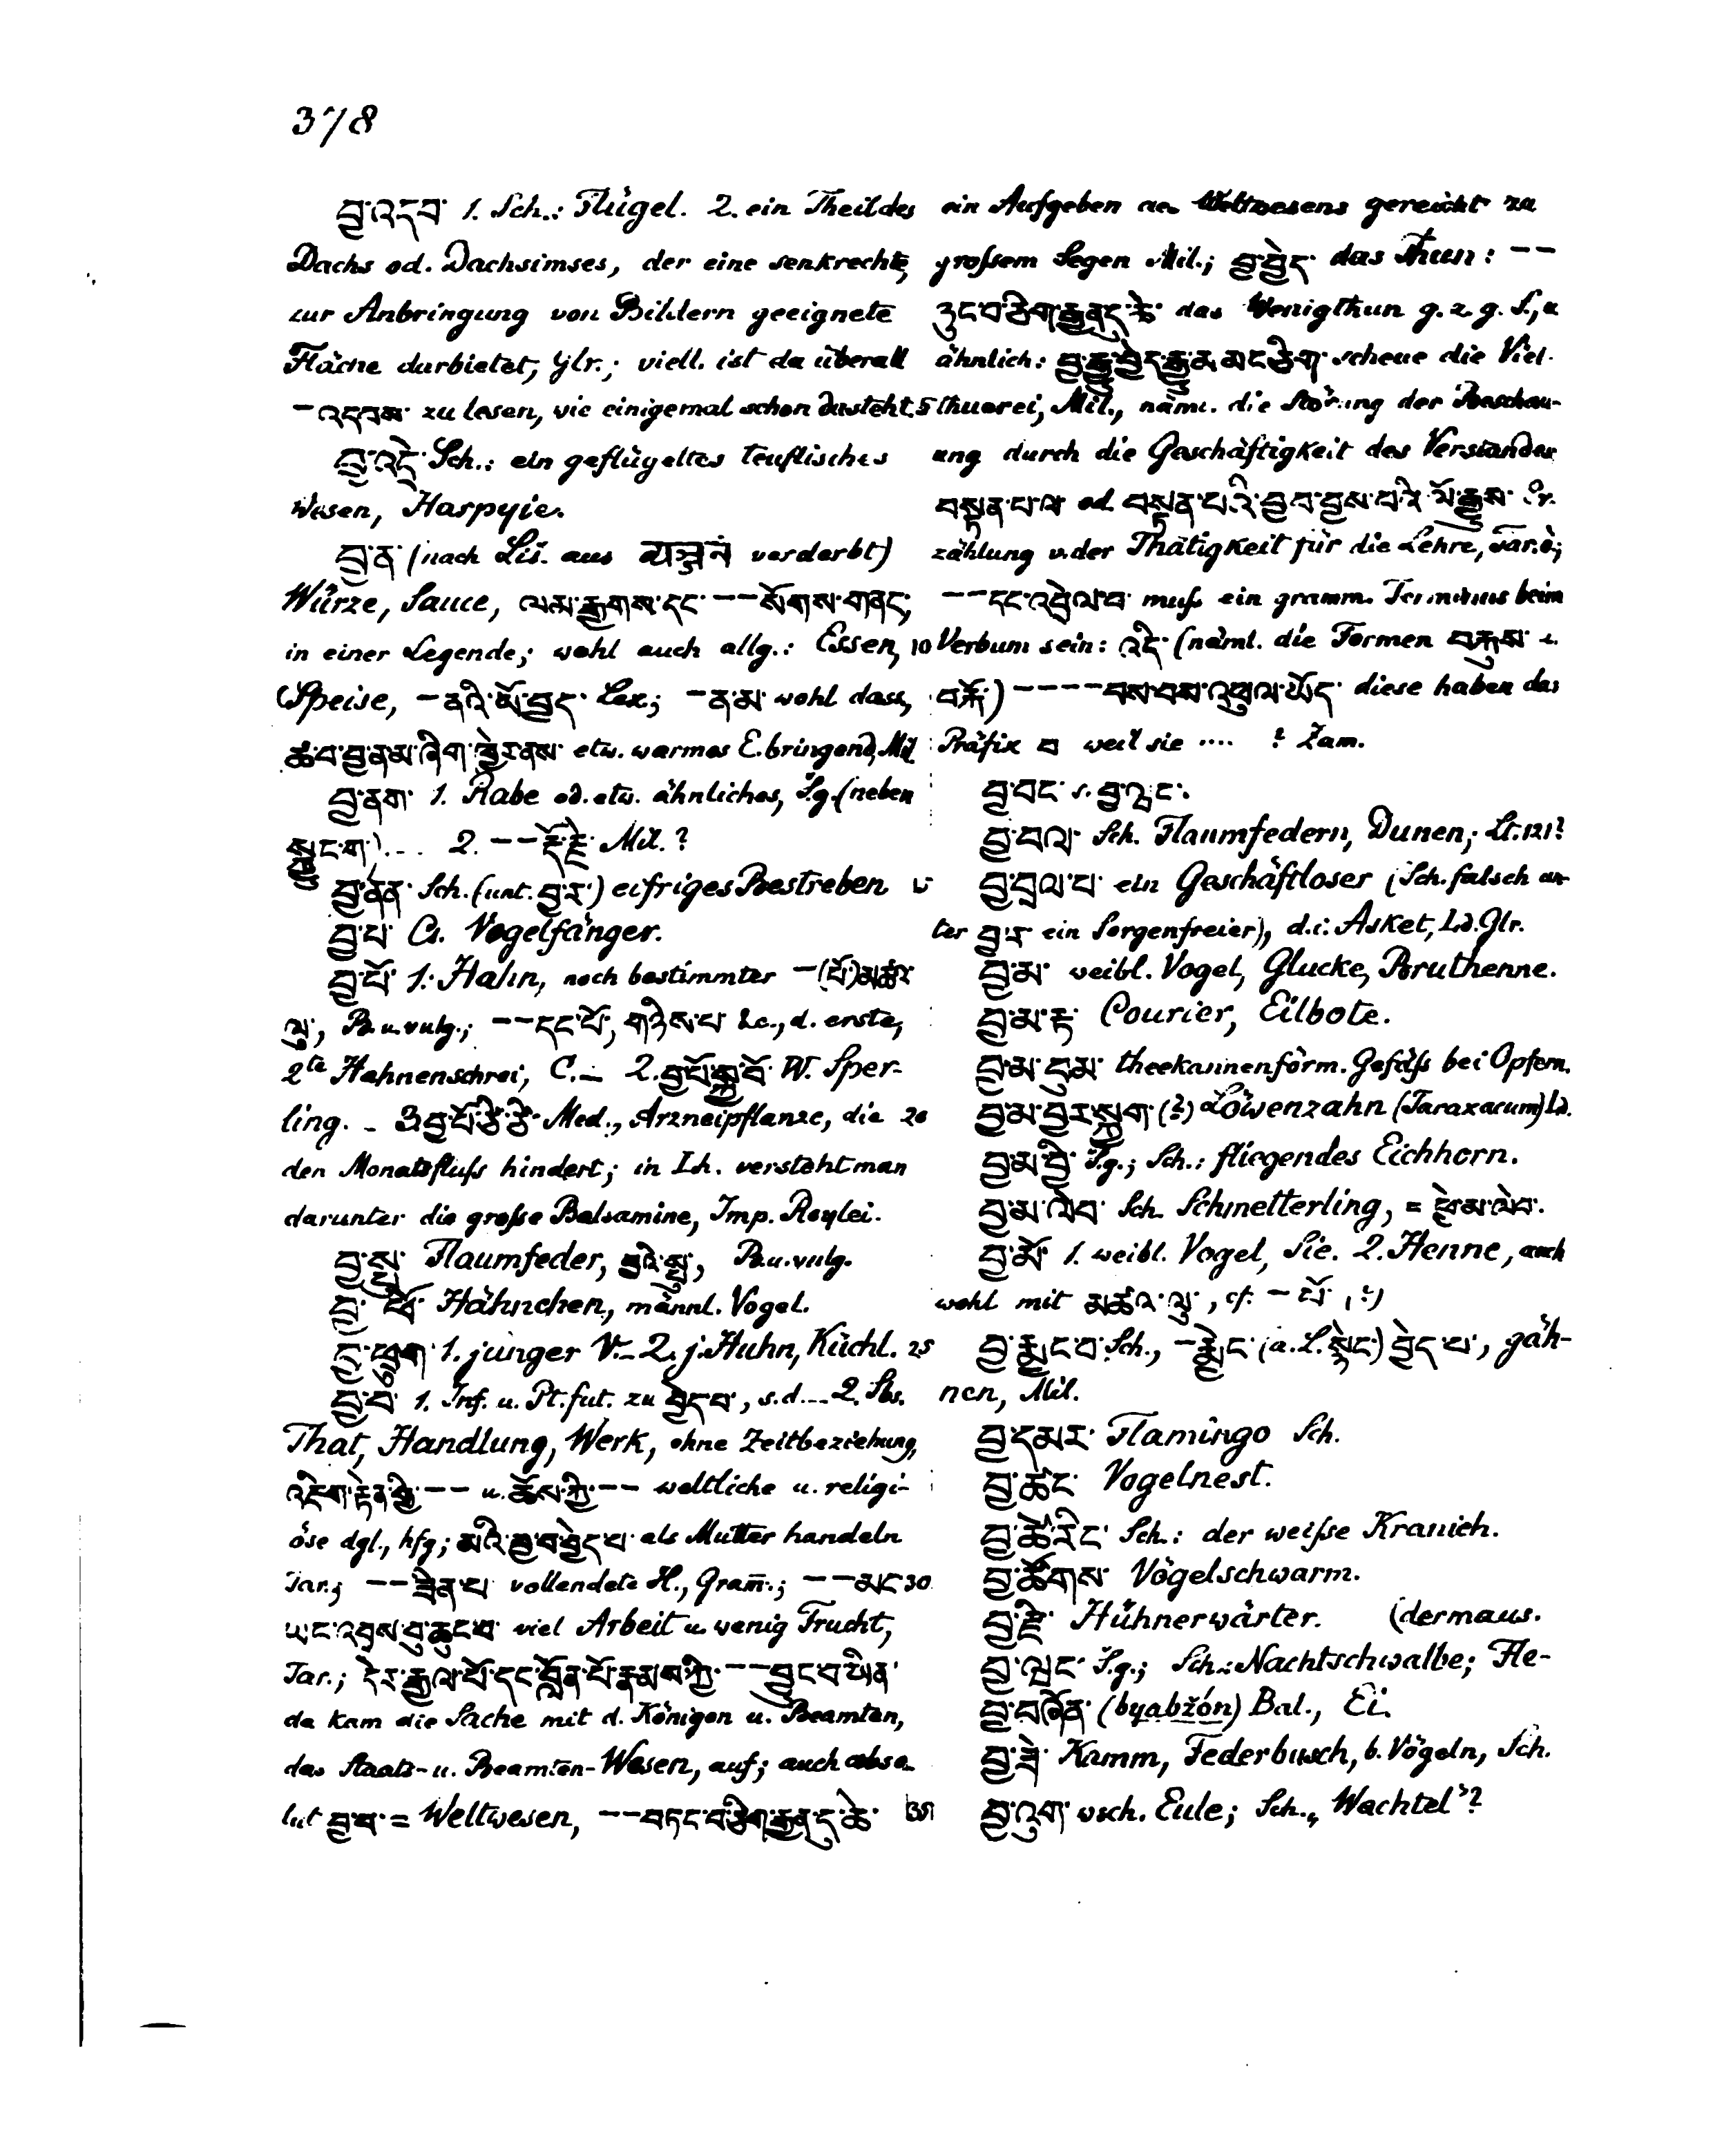 378
བྱ་འདབ་ 1. Sch.: Flügel. 2. ein Theil des
Dachs od. Dachsimses, der eine senkrechte,
zur Anbringung von Bildern geeignete
Fläche darbietet, Glr.; viell. ist da überall
–འདབས་ zu lesen, wie einigemal schon dasteht. 5
བྱ་འདྲེ་ Sch.: ein geflügeltes teuflisches
Wesen, Harpyie.
བྱ་ན་ (nach Liš. aus verderbt)
Würze, Sauce, ––སོགས་གནང་,
in einer Legende; wohl auch allg.: Essen, 10
Speise, –ནའི་ Lex.; –ན་མ་ wohl dass,
ཚ་བ་བྱ་ནམ་ཞིག་ཁྱེར་ནས་ etw. warmes E. bringend, Mil
བྱ་ནག་ 1. Rabe od. etw. ähnliches, S.g. (neben
2. ––རྡོ་རྗེ་ Mil.?
བྱ་ Sch. (unt. བྱ་ར་) eifriges Bestreben
བྱ་པ་ Cs. Vogelfänger.
བྱ་པོ་ 1. Hahn, noch bestimmter –(པོ་)མཚར་
ལུ་, B. u. vulg.; ––དང་པོ་, གཉིས་པ་ &c., d. erste,
2te Hahnenschrei, C. – 2. བྱ་པོ་ W. Sper-
ling. – 3 བྱ་པོ་ཙི་ཙི་ Med., Arzneipflanze, die 20
den Monatsfluſs hindert; in Lh. versteht man
darunter die groſse Balsamine, Imp. Roylei.
བྱ་སྤུ་ Flaumfeder, བྱའི་སྤུ་, B. u. vulg.
བྱ་ཕོ་ Hähnchen, männl. Vogel.
བྱ་ཕྲུག་ 1. junger V. – 2. j. Huhn, Küchl. 25
བྱ་བ་ 1. Inf. u. Pt. fut. zu བྱེད་པ་, s. d. – 2. Sbs.
That, Handlung, Werk, ohne Zeitbeziehung,
འཇིག་རྟེན་གྱི་–– u. ཆོས་ཀྱི་–– weltliche u. religi-
öse dgl., hfg; མའི་བྱ་བ་བྱེད་པ་ als Mutter handeln
Tar.; ––ཟིན་པ་ vollendete H., Gram.; ––མང་ 30
ཡང་འབྲས་བུ་ཆུང་བ་ viel Arbeit u. wenig Frucht,
Tar.; དེར་རྒྱལ་པོ་དང་བློན་པོ་རྣམས་ཀྱི་––བྱུང་བ་ཡིན་
da kam die Sache mit d. Königen u. Beamten,
das Staats- u. Beamten-Wesen, auf; auch abso-
lut བྱ་བ་ = Weltwesen, ––བཏང་བ་ཅིག་རྒྱུན་དུ་ཆེ་ 35
ein Aufgeben des Weltwesens gereicht zu
groſsem Segen Mil.; བྱ་བྱེད་ das Thun: ––
ཉུང་བ་ཅིག་རྒྱུན་དུ་ཆེ་ das Wenigthun g. z. g. S., u
ähnlich: མང་ཅིག་ scheue die Viel-
thuerei, Mil., näml. die Störung der Beschau-
ung durch die Geschäftigkeit des Verstandes
བསྟན་པ་ལ་ od. བསྟན་པའི་བྱ་བ་བྱས་པའི་ལོ་རྒྱུས་ Er-
zählung v. der Thätigkeit für die Lehre, Tar. ö;
––དང་འབྲེལ་བ་ muſs ein gramm. Terminus beim
Verbum sein: འདི་ (näml. die Formen བརྐུས་ u.
བརྐོ་) ––––བས་བས་འཕུལ་ཡོད་ diese haben das
Präfix བ weil sie .... ? Zam.
བྱ་བང་ s. བྱ་ཝང་.
བྱ་བལ་ Sch. Flaumfedern, Dunen; Lt. 121?
བྱ་བྲལ་བ་ ein Geschäftloser (Sch. falsch un-
ter བྱ་ར་ ein Sorgenfreier), d. i. Asket, Ld. Glr.
བྱ་མ་ weibl. Vogel, Glucke, Bruthenne.
བྱ་མ་རྟ་ Courier, Eilbote.
བྱ་མ་དུམ་ theekannenförm. Gefäſs bei Opfern.
བྱ་མ་བྱར་སྤུག་ (?) Löwenzahn (Taraxacum) Ld.
བྱ་མ་བྱི་ S.g.; Sch.: fliegendes Eichhorn.
བྱ་མ་ལེབ་ Sch. Schmetterling, = ཕྱེམ་ལེབ་.
བྱ་མོ་ 1. weibl. Vogel, Sie. 2. Henne, auch
wohl mit མཚར་ལུ་, cf. –པོ་ (?)
བྱ་རྨྱང་བ་ Sch., –རྨྱེང་ (a. L. སྙེང་) བྱེད་པ་, gäh-
nen, Mil.
བྱ་དམར་ Flamingo Sch.
བྱ་ཚང་ Vogelnest.
བྱ་ཚེ་རིང་ Sch.: der weiſse Kranich.
བྱ་ཚོགས་ Vögelschwarm.
བྱ་རྫི་ Hühnerwärter. (dermaus.
བྱ་ཝང་ S.g.; Sch.: Nachtschwalbe; Fle-
བྱ་བཞོན་ (byabžón) Bal., Ei.
བྱ་ཟེ་ Kamm, Federbusch, b. Vögeln, Sch.
བྱ་འུག་ wsch. Eule; Sch. „Wachtel"?